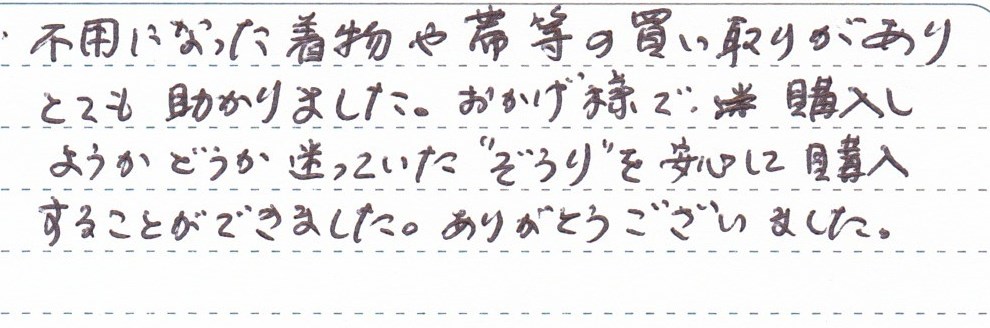 不用になった着物や帯等の買い取りがあり
とても助かりました。おかげ様で、購入し
ようかどうか迷っていた“ぞうり”を安心して購入
することができました。ありがとうございました。